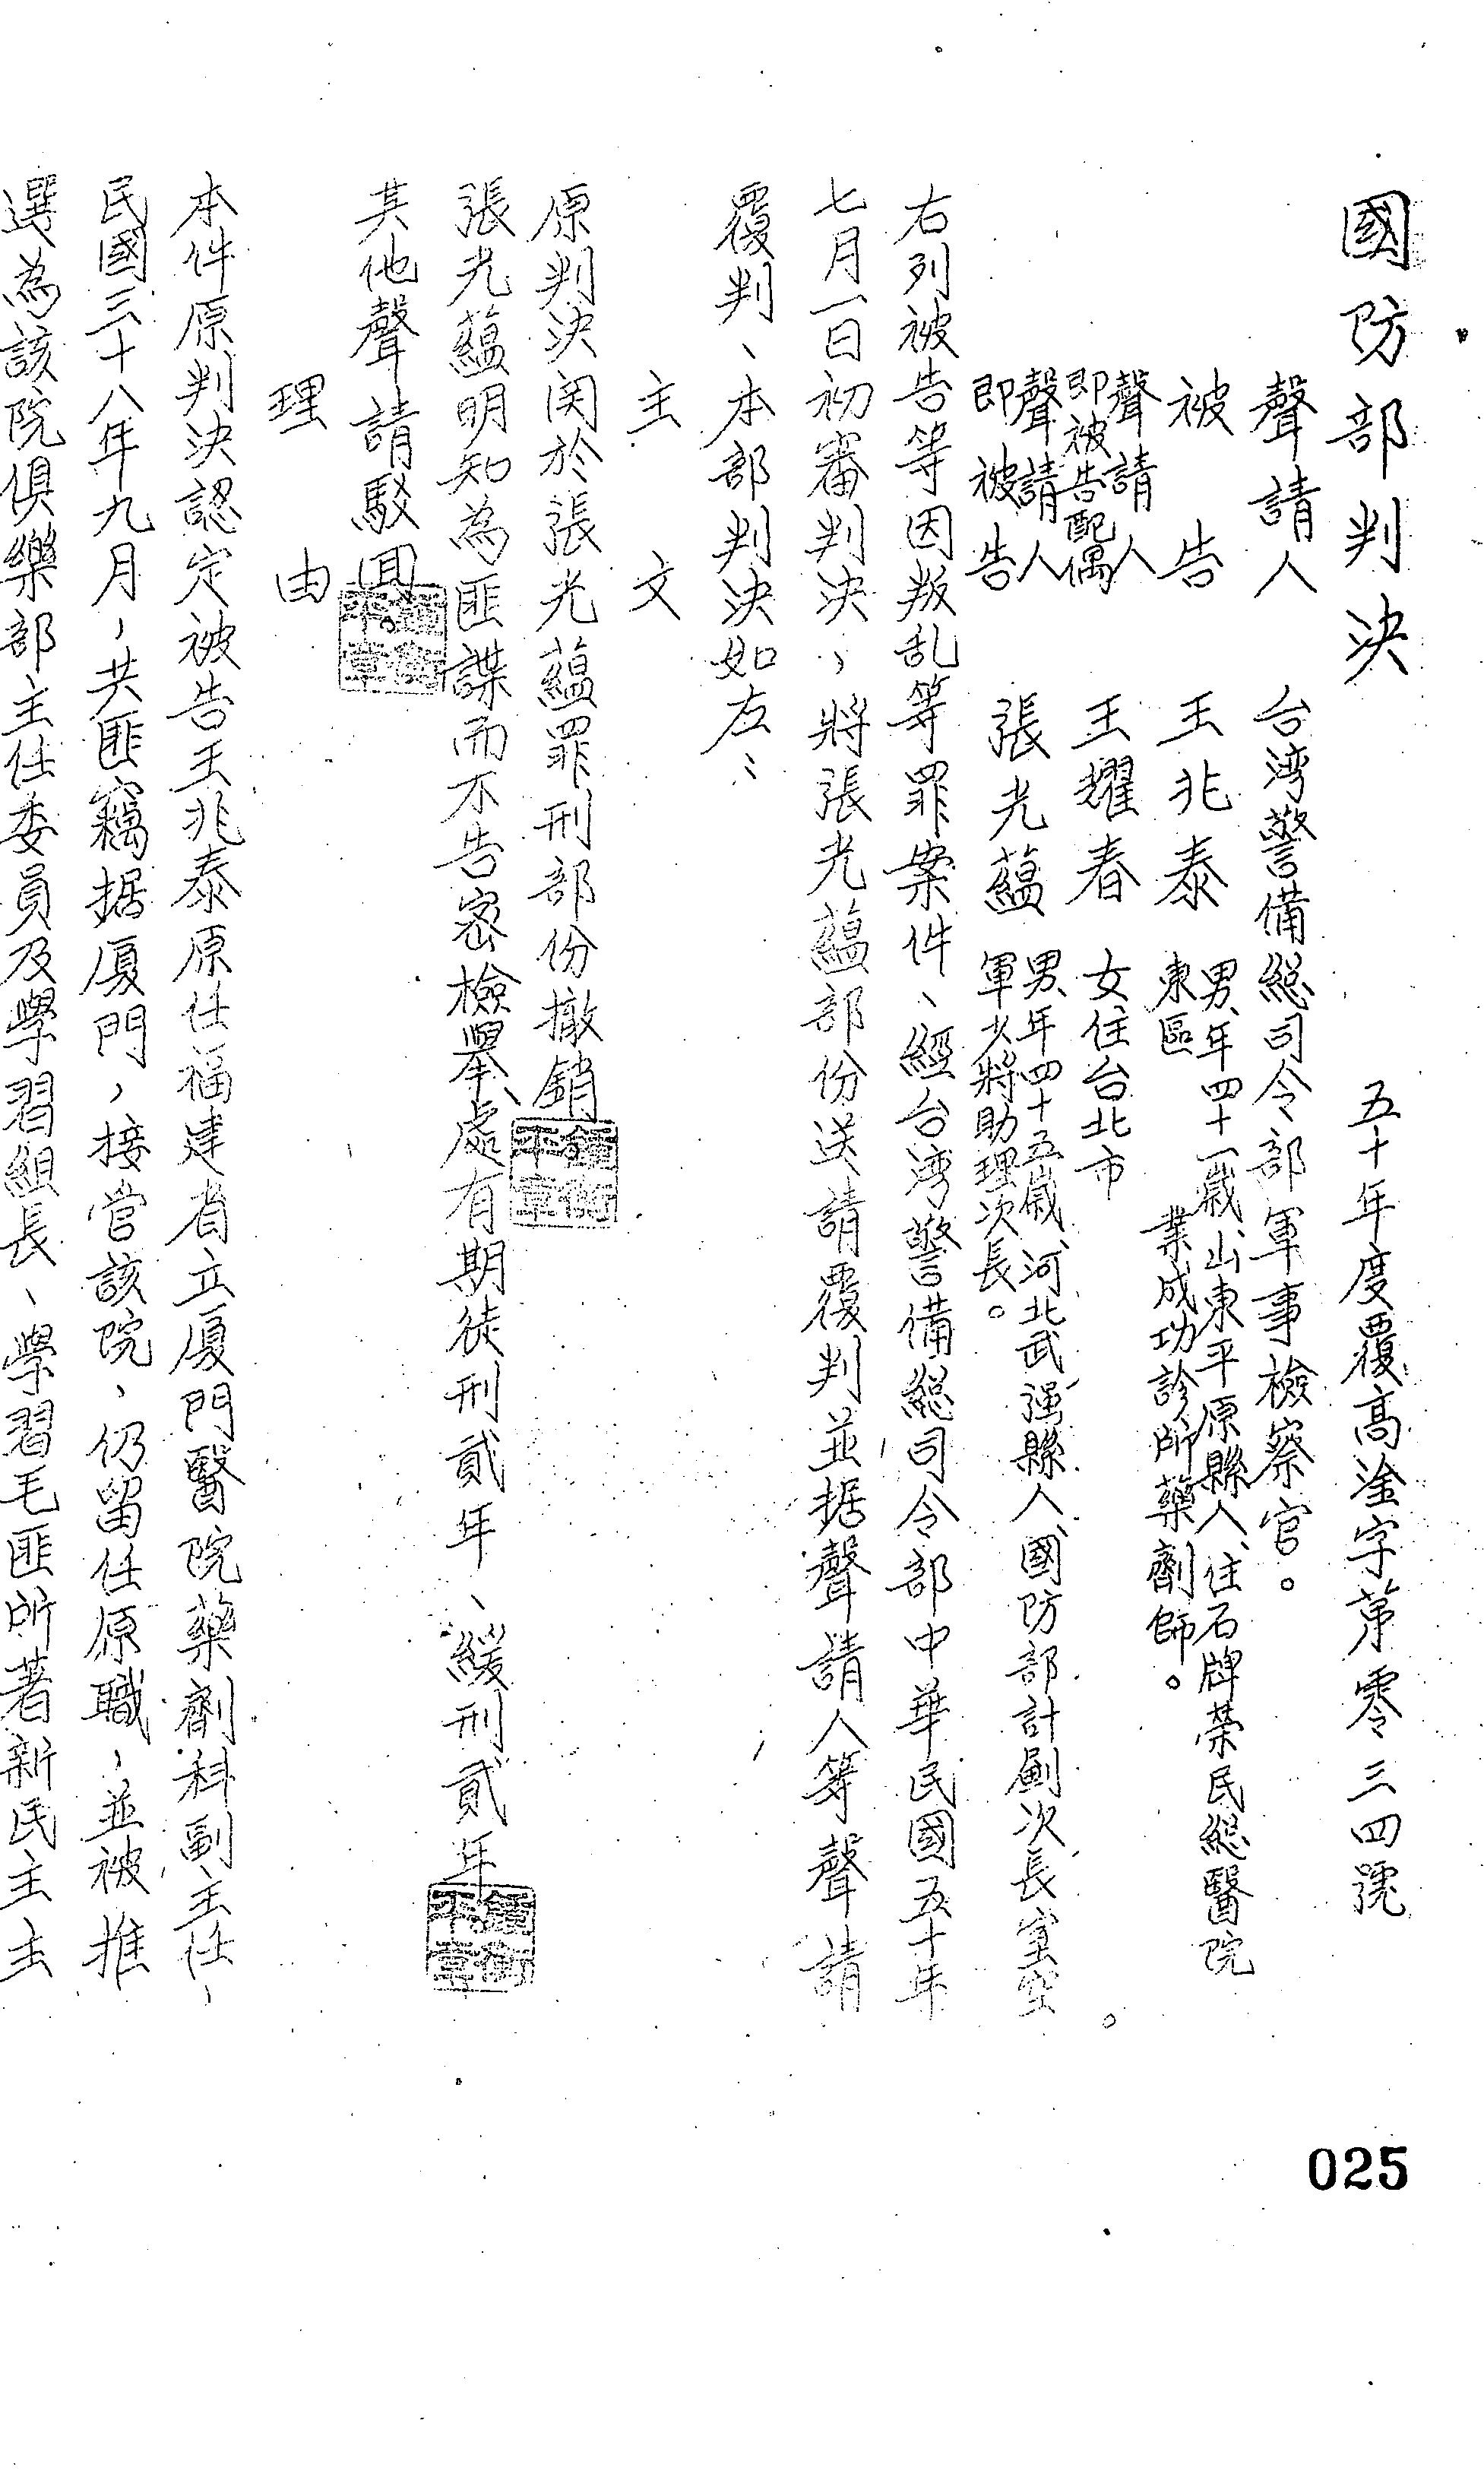 國防部判決
五十年度覆高淦字第零三四號
聲請人 台湾警備総司令部軍事檢察官。
被告 王兆泰 男、年四十一歲、山東平原縣人、住石牌榮民総醫院
東區 業成功診所藥劑師。
聲請人
即被告配偶 王耀春 女住台北市 。
聲請人
即被告 張光蘊 男、年四十五歲、河北武强縣人、國防部計劃次長室空
軍少將助理次長。
右列被告等因叛乱等罪案件、經台湾警備総司令部中華民國五十年
七月一日初審判決，將張光蘊部份送請覆判並据聲請人等聲請
覆判、本部判決如左：
主文
原判決関於張光蘊罪刑部份撤銷。
張光蘊明知為匪諜而不告密檢舉、處有期徒刑貳年、緩刑貳年。
其他聲請駁囬。
理由
本件原判決認定被告王兆泰原任福建省立厦門醫院藥劑科副主任、
民國三十八年九月，共匪竊据厦門，接管該院，仍留任原職，並被推
選為該院俱樂部主任委員及學習組長、學習毛匪所著新民主主
025